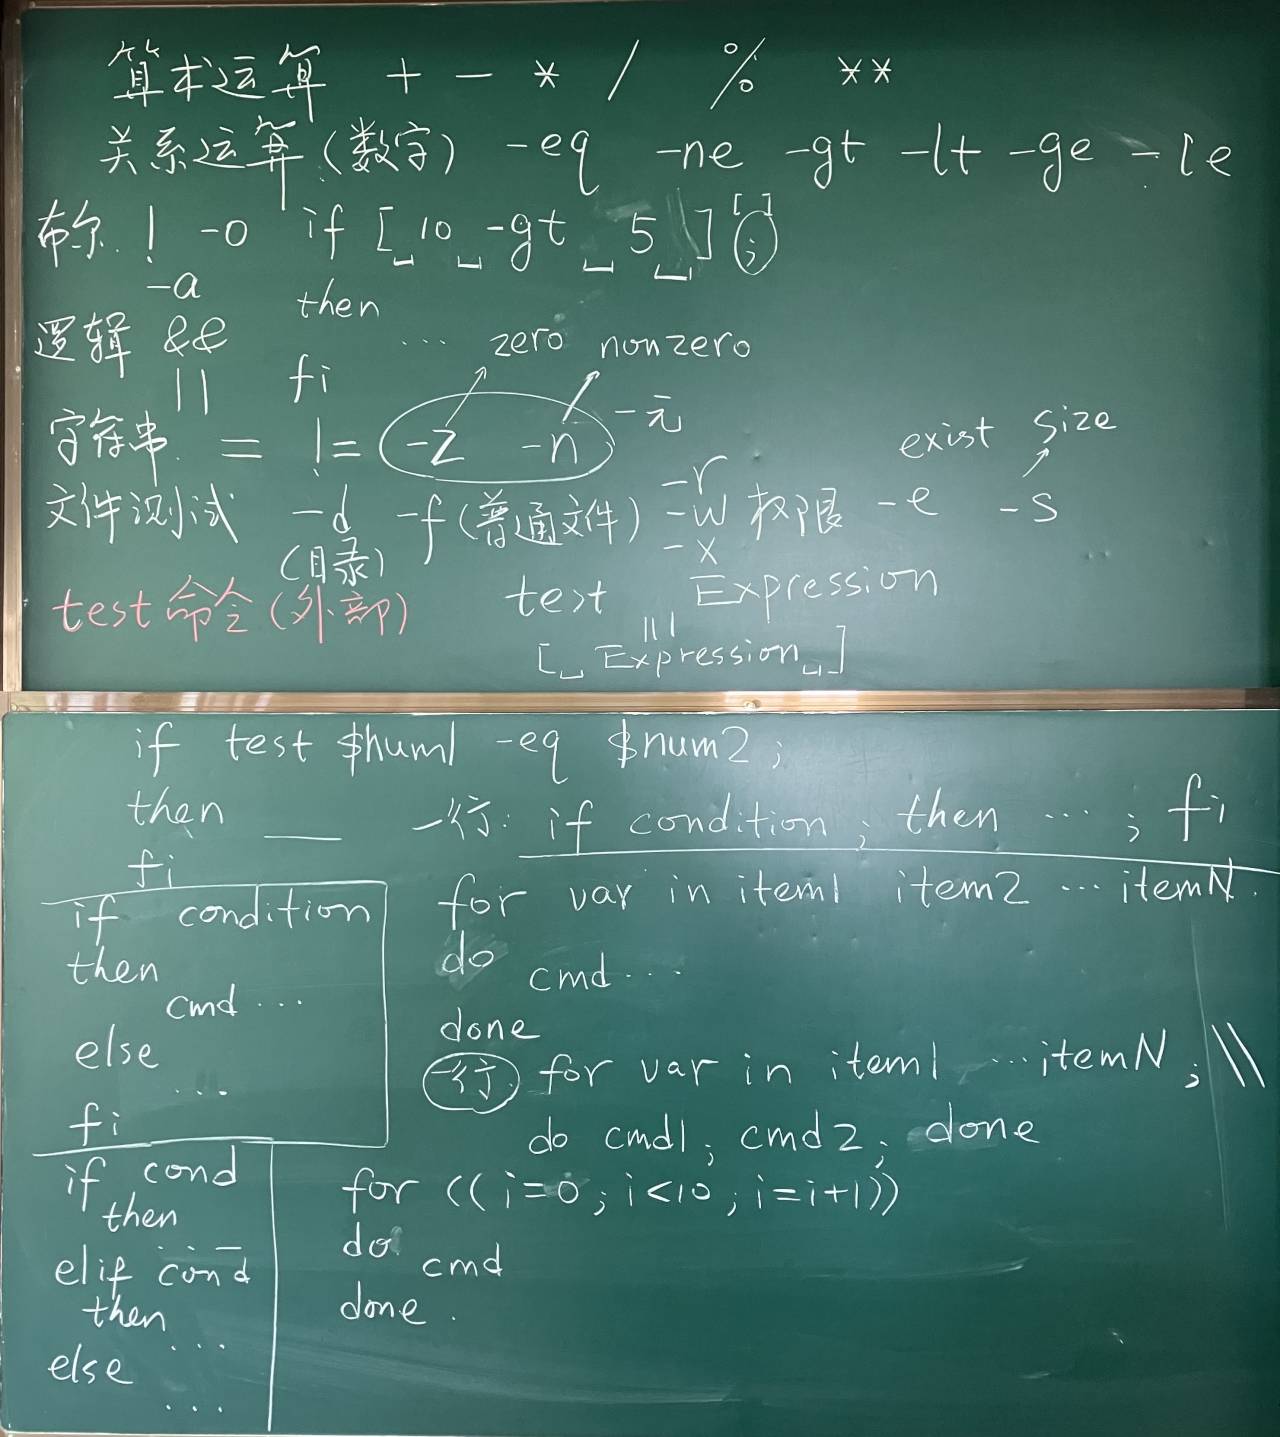 算术运算 + - * / % **
关系运算(数字) -eq -ne -gt -lt -ge -le
布尔. ! -o if [␣10␣-gt␣5␣] [;]
-a then
逻辑 && ... zero nonzero
|| fi
字符串. = != -z -n 一元
exist size
文件测试 -d -f(普通文件) -r -w -x 权限 -e -s
(目录)
test命令(外部) test Expression
|||
[␣Expression␣]
if test $num1 -eq $num2;
then ___
fi
一行: if condition; then ... ; fi
if condition
then
cmd ...
else
...
fi
for var in item1 item2 ... itemN.
do
cmd ...
done
一行: for var in item1 ... itemN; \\
do cmd1; cmd2; done
if cond
then
...
elif cond
then
...
else
...
for ((i=0; i<10; i=i+1))
do
cmd
done.